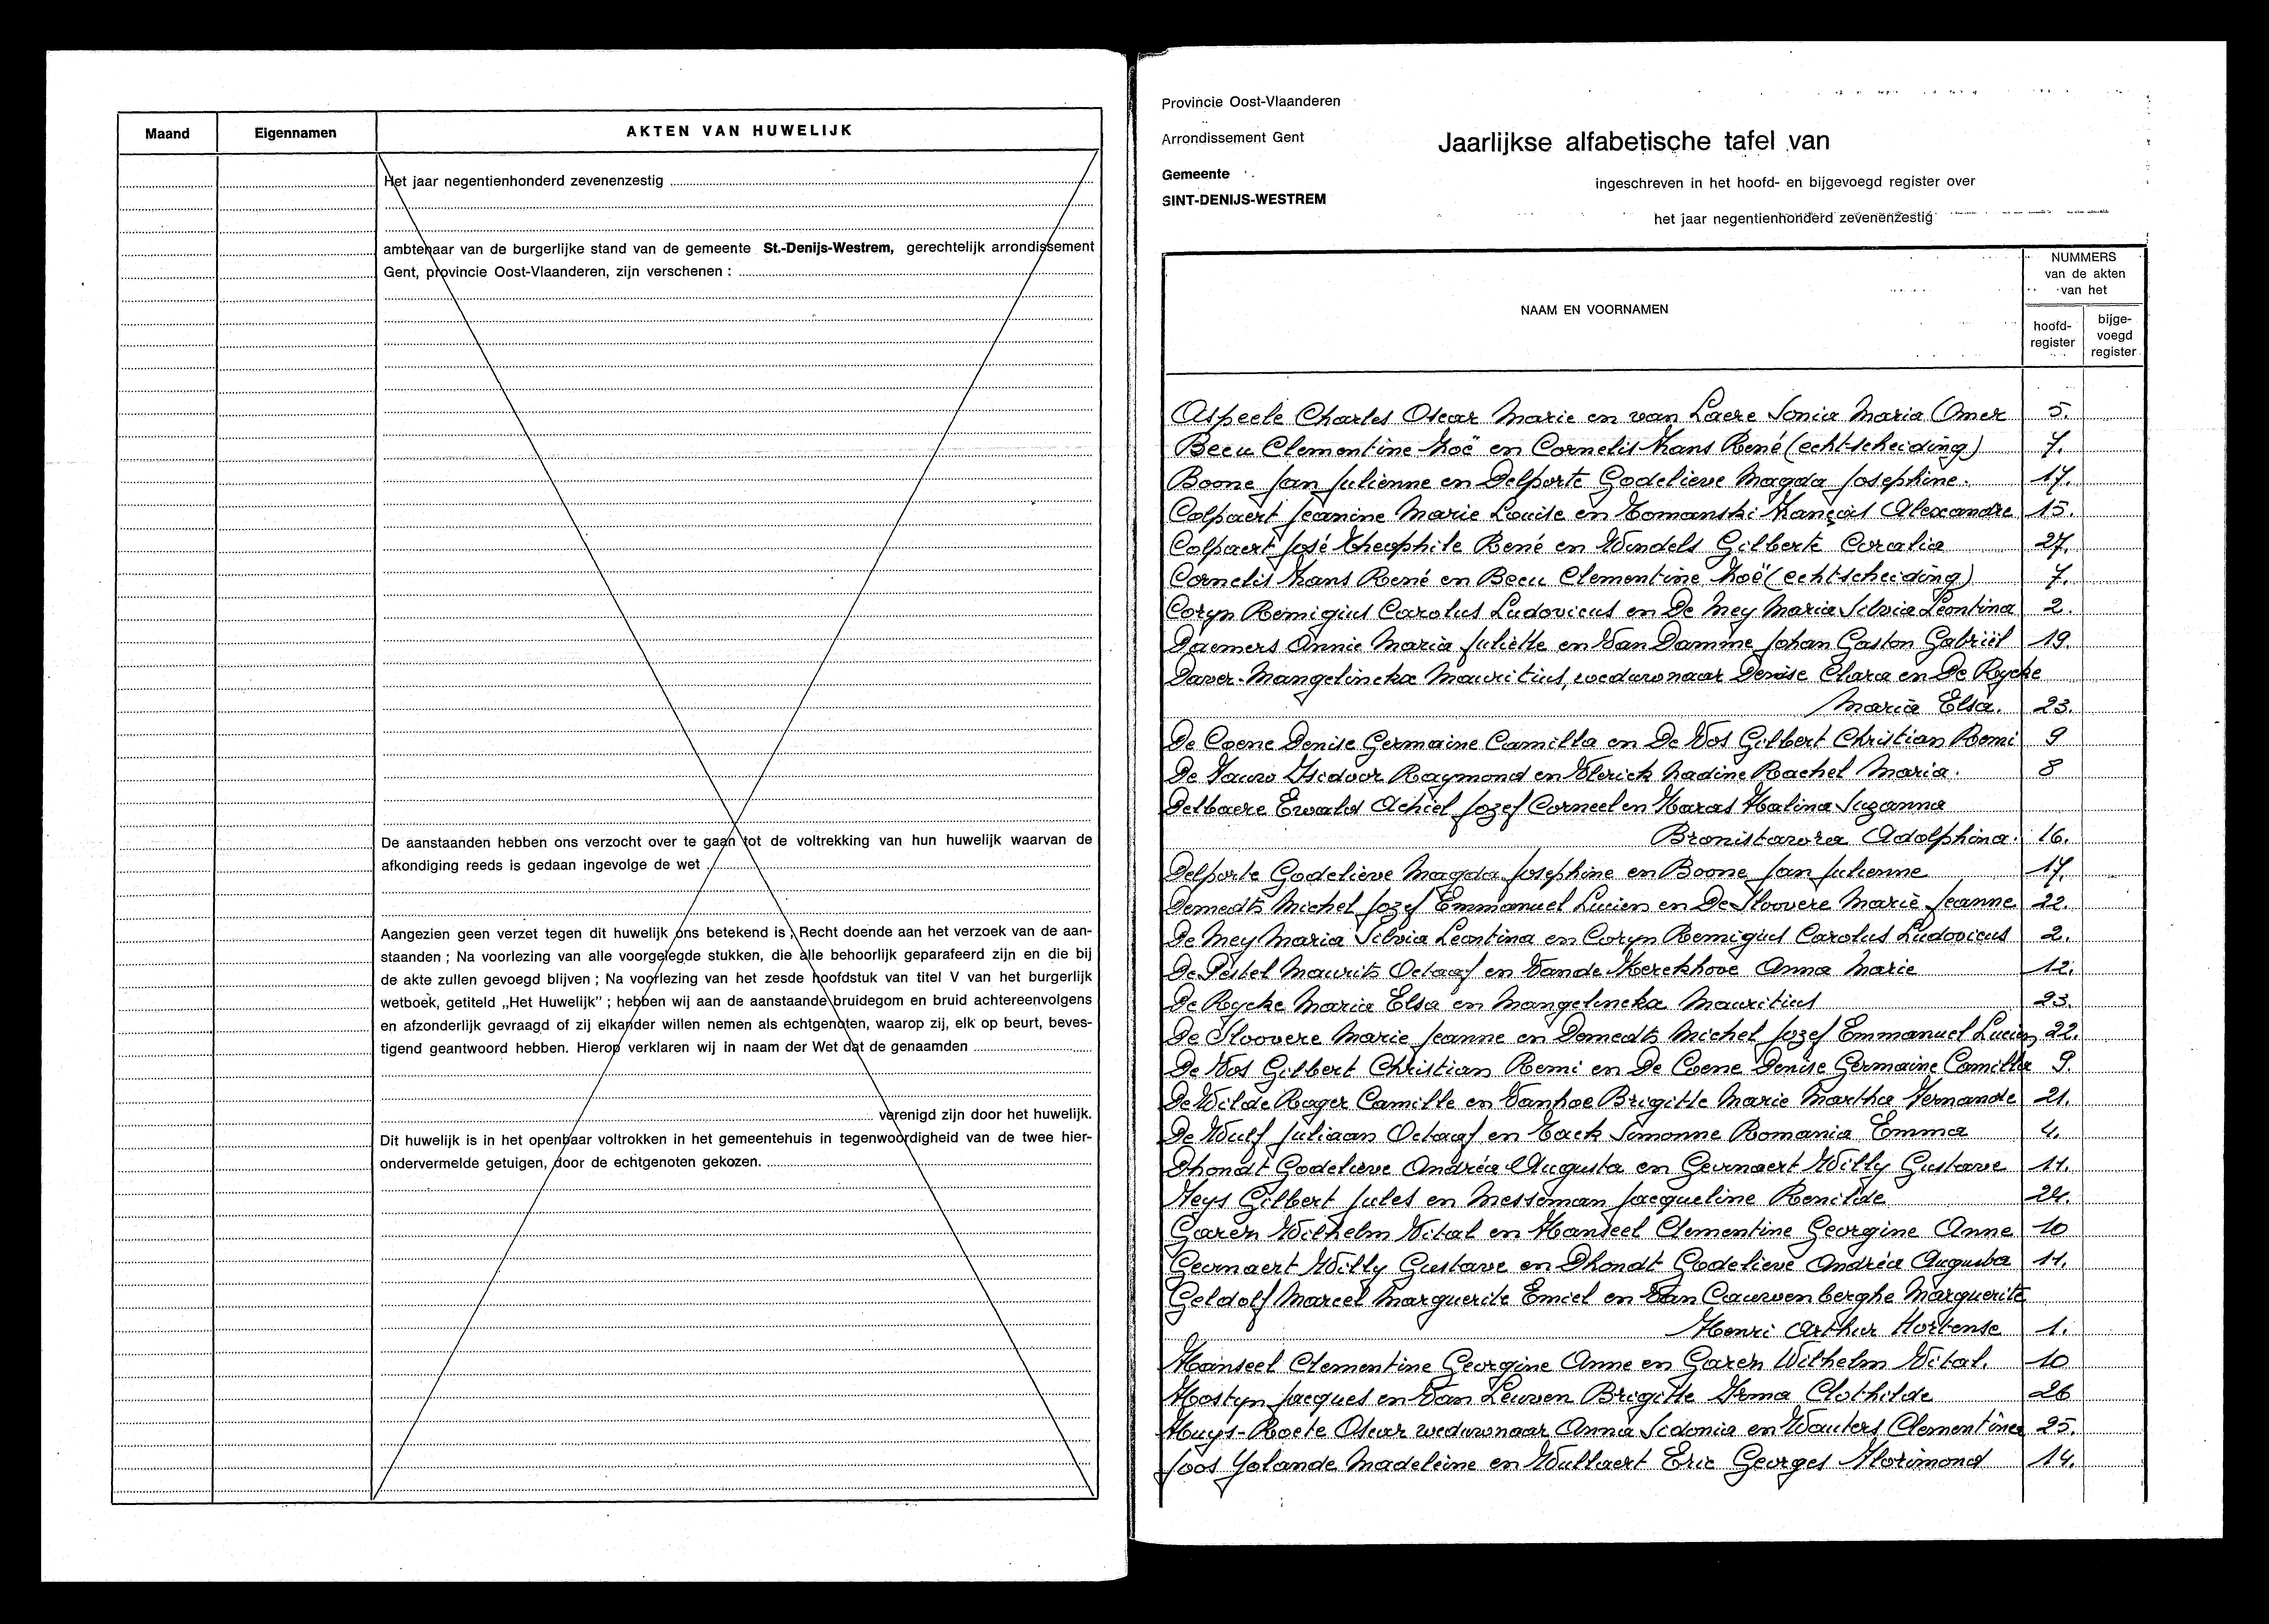 Maand
Eigennamen
AKTEN VAN HUWELIJK
Het jaar negentienhonderd zevenenzestig
ambtenaar van de burgerlijke stand van de gemeente St.-Denijs-Westrem, gerechtelijk arrondissement
Gent, provincie Oost-Vlaanderen, zijn verschenen :
De aanstaanden hebben ons verzocht over te gaan tot de voltrekking van hun huwelijk waarvan de
afkondiging reeds is gedaan ingevolge de wet
Aangezien geen verzet tegen dit huwelijk ons betekend is ; Recht doende aan het verzoek van de aan-
staanden ; Na voorlezing van alle voorgelegde stukken, die alle behoorlijk geparafeerd zijn en die bij
de akte zullen gevoegd blijven ; Na voorlezing van het zesde hoofdstuk van titel V van het burgerlijk
wetboek, getiteld „Het Huwelijk" ; hebben wij aan de aanstaande bruidegom en bruid achtereenvolgens
en afzonderlijk gevraagd of zij elkander willen nemen als echtgenoten, waarop zij, elk op beurt, beves-
tigend geantwoord hebben. Hierop verklaren wij in naam der Wet dat de genaamden
verenigd zijn door het huwelijk.
Dit huwelijk is in het openbaar voltrokken in het gemeentehuis in tegenwoordigheid van de twee hier-
ondervermelde getuigen, door de echtgenoten gekozen.
Provincie Oost-Vlaanderen
Arrondissement Gent
Gemeente
SINT-DENIJS-WESTREM
Jaarlijkse alfabetische tafel van
ingeschreven in het hoofd- en bijgevoegd register over
het jaar negentienhonderd zevenenzestig
NAAM EN VOORNAMEN
NUMMERS
van de akten
van het
hoofd-
register
bijge-
voegd
register
Aspeele Charles Oscar Marie en van Laere Sonia Maria Omer 5.
Becu Clementine Zoë en Cornelis Frans René (echtscheiding) 7.
Boone Jan Julienne en Delporte Godelieve Magda Josephine. 17.
Colpaert Jeanine Marie Louise en Tomanski François Alexandre 15.
Colpaert José Theophile René en Windels Gilberte Coralia 27.
Cornelis Frans René en Becu Clementine Zoë (echtscheiding) 7.
Coryn Remigius Carolus Ludovicus en De Mey Maria Silvia Leontina 2.
Daemers Annie Maria Juliette en Van Damme Johan Gaston Gabriël 19.
Daver-Mangelinckx Mauritius, weduwnaar Denise Clara en De Rycke
Maria Elsa. 23.
De Coene Denise Germaine Camilla en De Vos Gilbert Christian Remi 9
De Fauw Isidoor Raymond en Vlerick Nadine Rachel Maria. 8
Delbaere Ewald Achiel Jozef Corneel en Haras Halina Suzanna
Bronislawa Adolphina. 16.
Delporte Godelieve Magda Josephine en Boone Jan Julienne 17.
Demedts Michel Jozef Emmanuel Lucien en De Sloovere Marie Jeanne 22.
De Mey Maria Silvia Leontina en Coryn Remigius Carolus Ludovicus 2.
De Pestel Maurits Octaaf en Vande Kerckhove Anna Marie 12.
De Rycke Maria Elsa en Mangelinckx Mauritius 23.
De Sloovere Marie Jeanne en Demedts Michel Jozef Emmanuel Lucien 22.
De Vos Gilbert Christian Remi en De Coene Denise Germaine Camilla 9.
De Wilde Roger Camille en Vanhoe Brigitte Marie Martha Fernande 21.
De Wulf Juliaan Octaaf en Tack Simonne Romania Emma 4.
Dhondt Godelieve Andréa Augusta en Geirnaert Willy Gustave 11.
Feys Gilbert Jules en Messeman Jacqueline Renilde 24.
Garen Wilhelm Vital en Hanseel Clementine Georgine Anne 10
Geirnaert Willy Gustave en Dhondt Godelieve Andréa Augusta 11.
Geldolf Marcel Marguerite Emiel en Van Cauwenberghe Marguerite
Henri Arthur Hortense 1.
Hanseel Clementine Georgine Anne en Garen Wilhelm Vital. 10
Hostyn Jacques en Van Leuven Brigitte Irma Clothilde 26
Huys-Roete Oscar weduwnaar Anna Sidonia en Wauters Clementine 25.
Joos Yolande Madeleine en Wullaert Eric Georges Florimond 14.